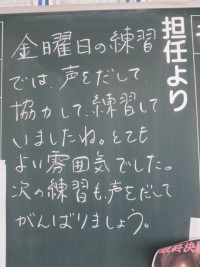 担任より
金曜日の練習
では、声をだして
協力して、練習して
いましたね。とても
よい雰囲気でした。
次の練習も、声をだして
がんばりましょう。